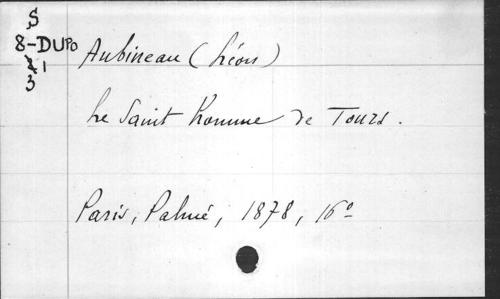 S
8-DUPo
21
3
Aubineau (Léon)
Le Saint Homme de Tours.
Paris, Palmé, 1878, 16º